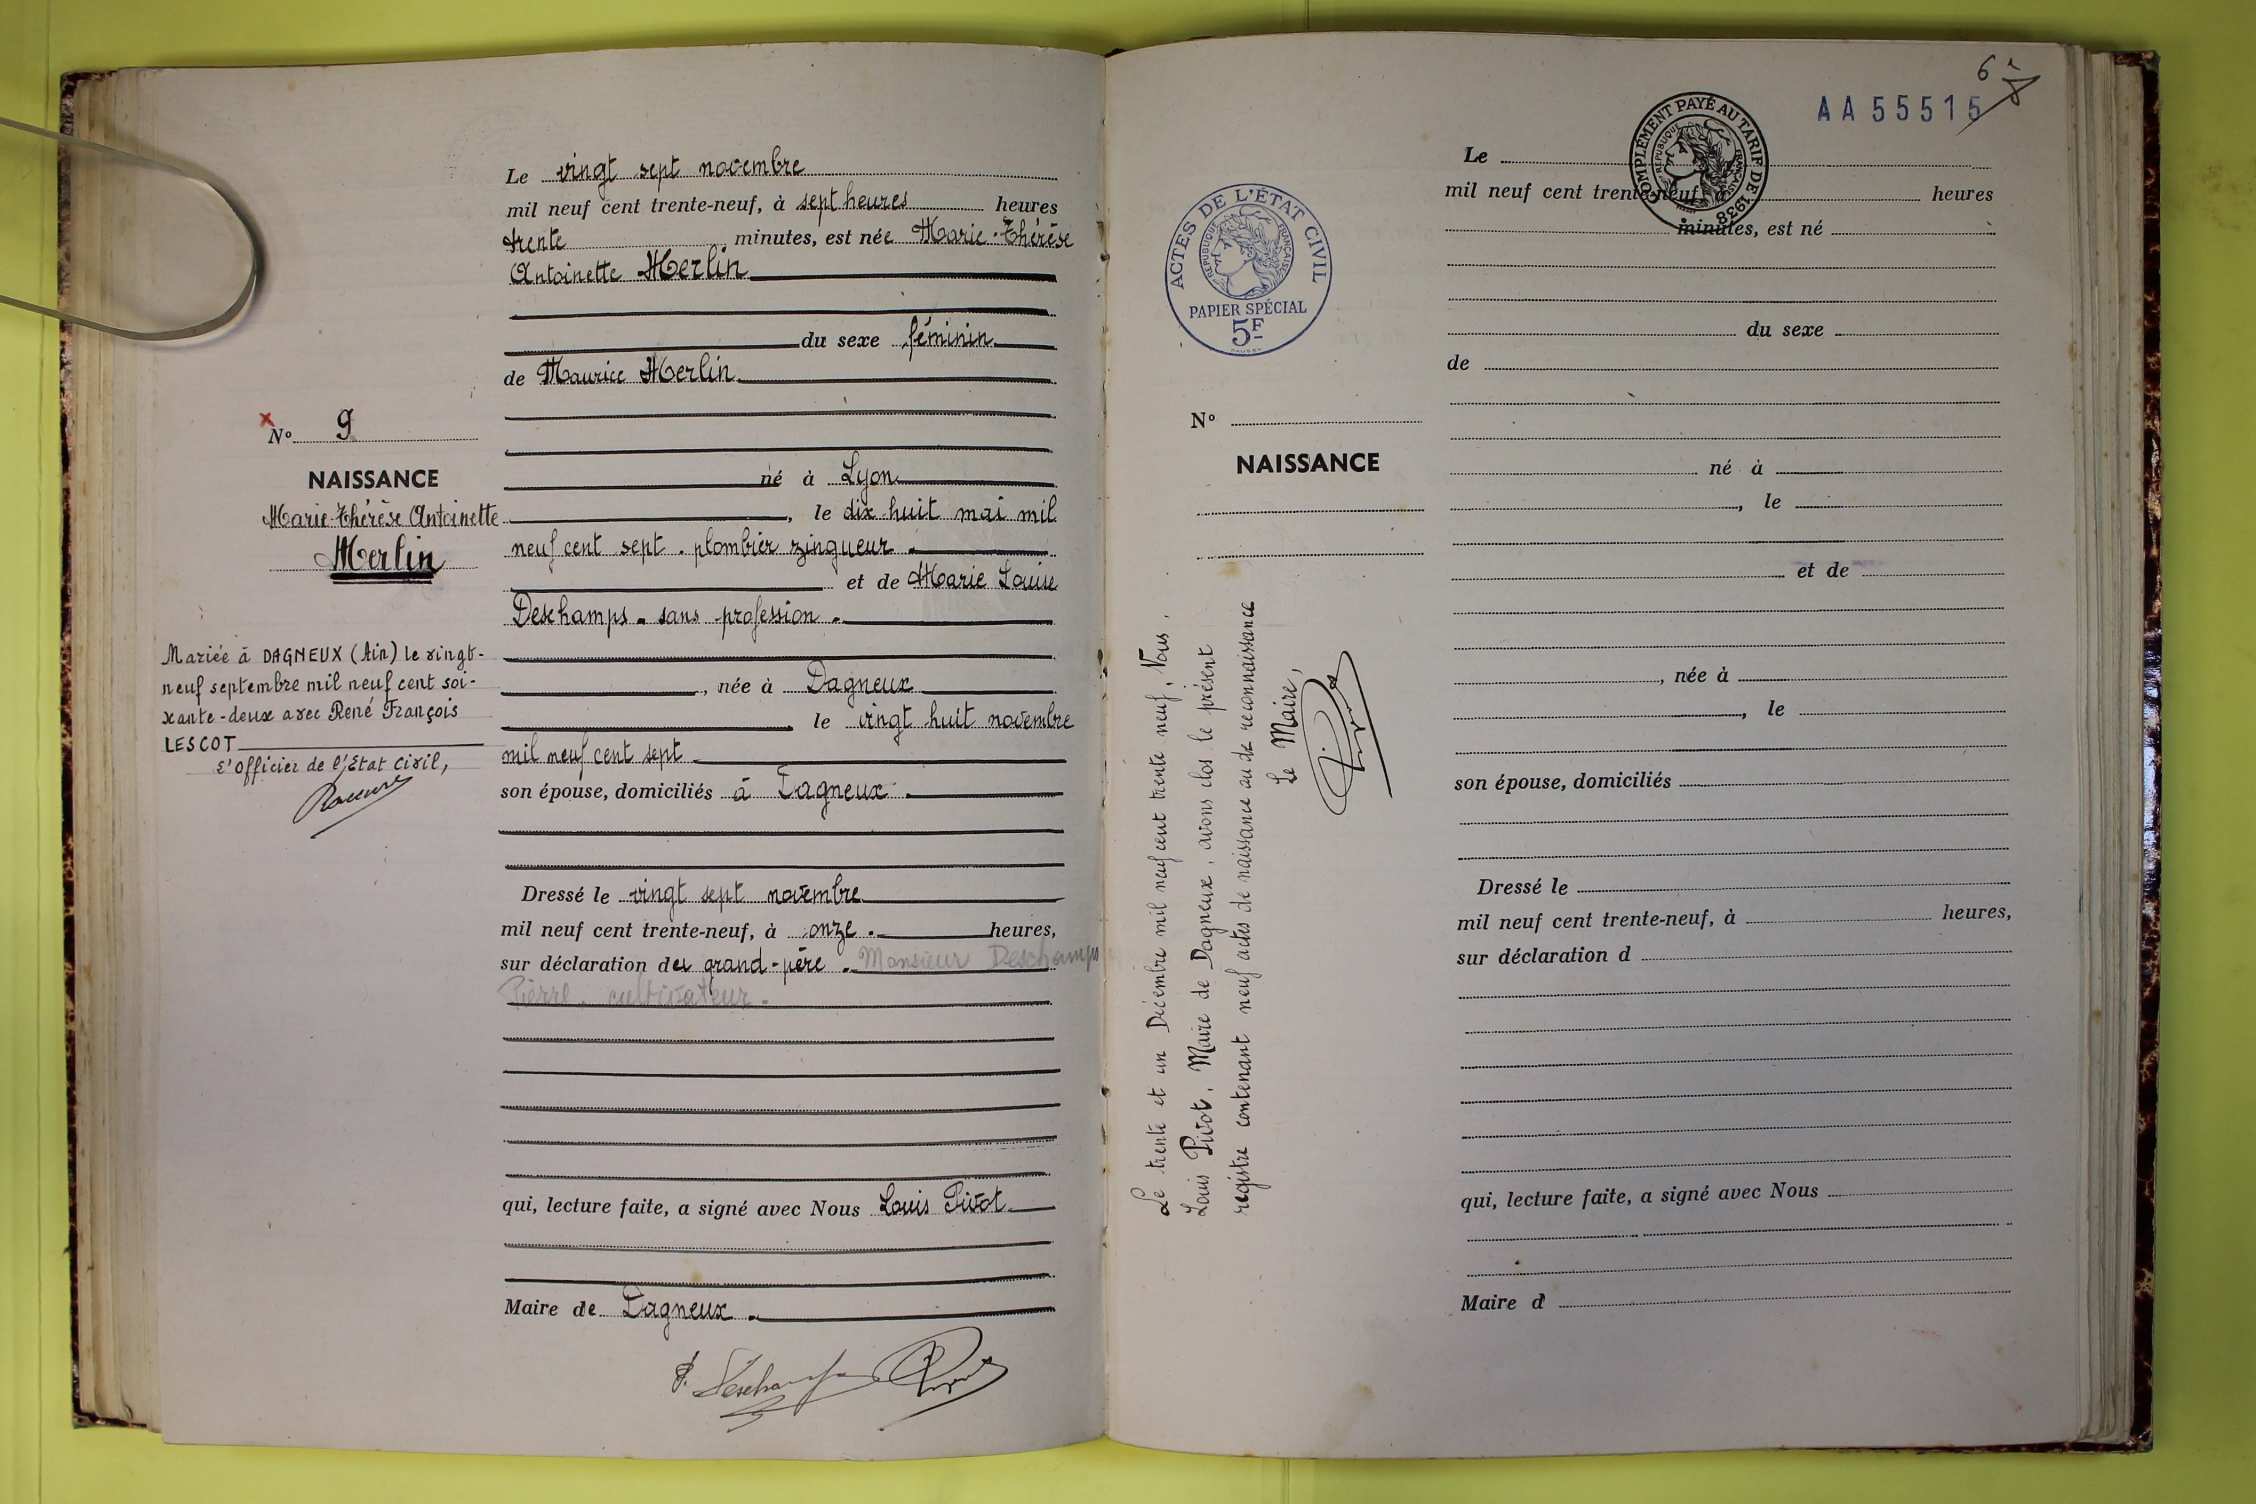 Le vingt sept novembre
mil neuf cent trente-neuf, à sept heures heures
trente minutes, est née Marie-Thérèse
Antoinette Merlin
du sexe féminin
de Maurice Merlin
né à Lyon
, le dix huit mai mil
neuf cent sept. plombier zingueur.
et de Marie Louise
Deschamps. sans profession.
, née à Dagneux
le vingt huit novembre
mil neuf cent sept
son épouse, domiciliés à Dagneux.
Dressé le vingt sept novembre
mil neuf cent trente-neuf, à onze. heures,
sur déclaration du grand-père. Monsieur Deschamps
Pierre. cultivateur.
qui, lecture faite, a signé avec Nous Louis Pivot.
Maire de Dagneux.
P. Deschamps
N° 9
NAISSANCE
Marie-Thérèse Antoinette
Merlin
Mariée à DAGNEUX (Ain) le vingt-
neuf septembre mil neuf cent soi-
xante-deux avec René François
LESCOT
L'Officier de l'Etat Civil,
6
AA55515
COMPLÉMENT PAYÉ AU TARIF DE 1938
RÉPUBLIQUE FRANÇAISE
ACTES DE L'ÉTAT CIVIL
RÉPUBLIQUE FRANÇAISE
PAPIER SPÉCIAL
5F
N°
NAISSANCE
Le trente et un Décembre mil neuf cent trente neuf, Nous,
Louis Pivot, Maire de Dagneux, avons clos le présent
registre contenant neuf actes de naissance au de reconnaissance
Le Maire,
Pivot
Le
mil neuf cent trente-neuf, à heures
minutes, est né
du sexe
de
né à
, le
et de
, née à
, le
son épouse, domiciliés
Dressé le
mil neuf cent trente-neuf, à heures,
sur déclaration d
qui, lecture faite, a signé avec Nous
Maire d